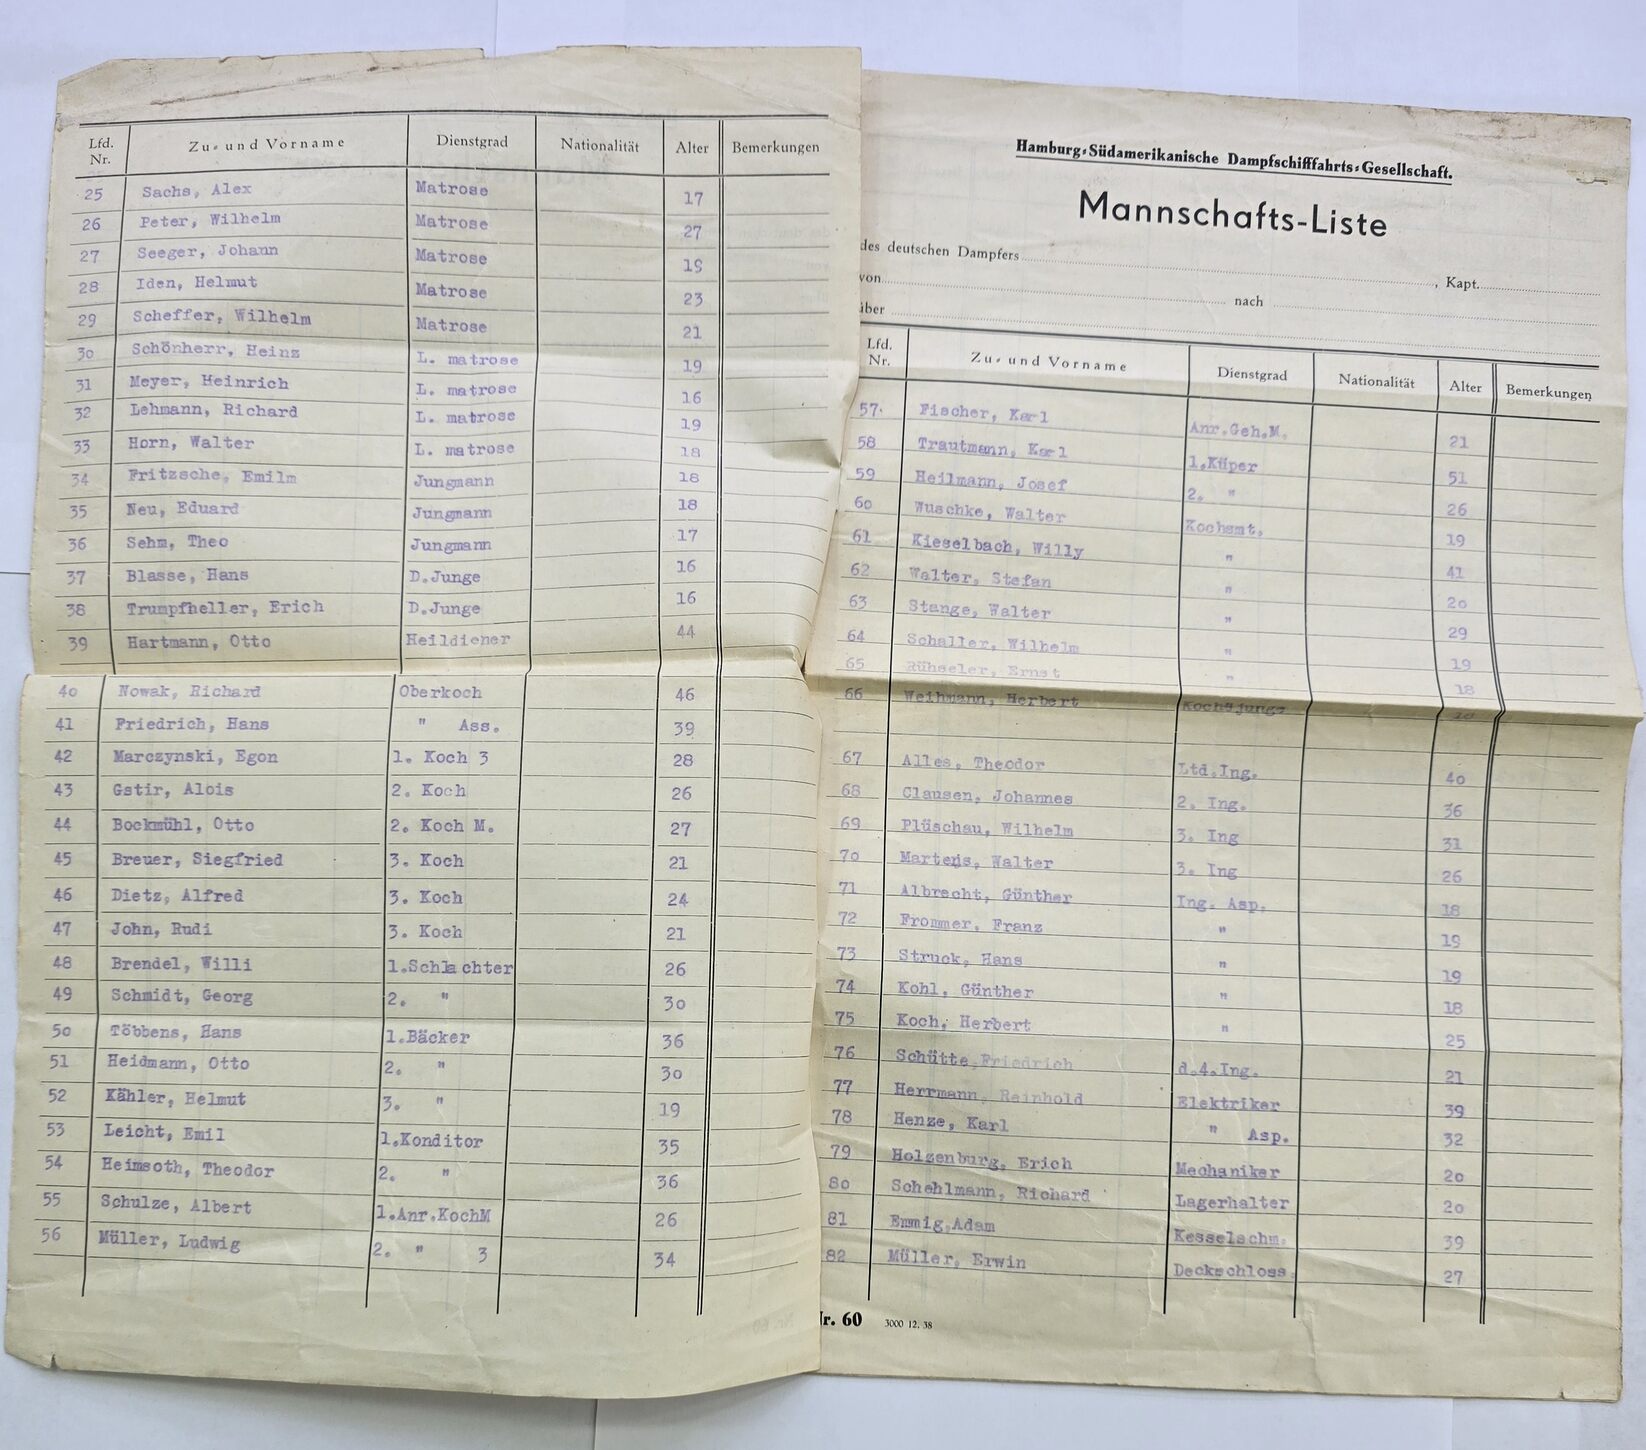 Lfd. Nr. Zu- und Vorname Dienstgrad Nationalität Alter Bemerkungen
25 Sachs, Alex Matrose 17
26 Peter, Wilhelm Matrose 27
27 Seeger, Johann Matrose 19
28 Iden, Helmut Matrose 23
29 Scheffer, Wilhelm Matrose 21
30 Schönherr, Heinz L. matrose 19
31 Meyer, Heinrich L. matrose 16
32 Lehmann, Richard L. matrose 19
33 Horn, Walter L. matrose 18
34 Fritzsche, Emilm Jungmann 18
35 Neu, Eduard Jungmann 18
36 Sehm, Theo Jungmann 17
37 Blasse, Hans D.Junge 16
38 Trumpfheller, Erich D.Junge 16
39 Hartmann, Otto Heildiener 44
40 Nowak, Richard Oberkoch 46
41 Friedrich, Hans " Ass. 39
42 Marczynski, Egon 1. Koch 3 28
43 Gstir, Alois 2. Koch 26
44 Bockmühl, Otto 2. Koch M. 27
45 Breuer, Siegfried 3. Koch 21
46 Dietz, Alfred 3. Koch 24
47 John, Rudi 3. Koch 21
48 Brendel, Willi 1.Schlachter 26
49 Schmidt, Georg 2. " 30
50 Többens, Hans 1.Bäcker 36
51 Heidmann, Otto 2. " 30
52 Kähler, Helmut 3. " 19
53 Leicht, Emil 1.Konditor 35
54 Heimsoth, Theodor 2. " 36
55 Schulze, Albert 1.Anr.KochM 26
56 Müller, Ludwig 2. " 3 34
Hamburg-Südamerikanische Dampfschifffahrts-Gesellschaft.
Mannschafts-Liste
des deutschen Dampfers , Kapt.
von nach
über
Lfd. Nr. Zu- und Vorname Dienstgrad Nationalität Alter Bemerkungen
57 Fischer, Karl Anr.Geh.M. 21
58 Trautmann, Karl 1.Küper 51
59 Heilmann, Josef 2. " 26
60 Wuschke, Walter Kochsmt. 19
61 Kieselbach, Willy " 41
62 Walter, Stefan " 20
63 Stange, Walter " 29
64 Schaller, Wilhelm " 19
65 Rühseler, Ernst " 18
66 Weihmann, Herbert Kochsjunge
67 Alles, Theodor Ltd.Ing. 40
68 Clausen, Johannes 2. Ing. 36
69 Plüschau, Wilhelm 3. Ing 31
70 Martens, Walter 3. Ing 26
71 Albrecht, Günther Ing. Asp. 18
72 Frommer, Franz " 19
73 Struck, Hans " 19
74 Kohl, Günther " 18
75 Koch, Herbert " 25
76 Schütte,Friedrich d.4.Ing. 21
77 Herrmann, Reinhold Elektriker 39
78 Henze, Karl " Asp. 32
79 Holzenburg, Erich Mechaniker 20
80 Schehlmann, Richard Lagerhalter 20
81 Emmig,Adam Kesselschm. 39
82 Müller, Erwin Deckschloss. 27
Nr. 60 3000 12. 38